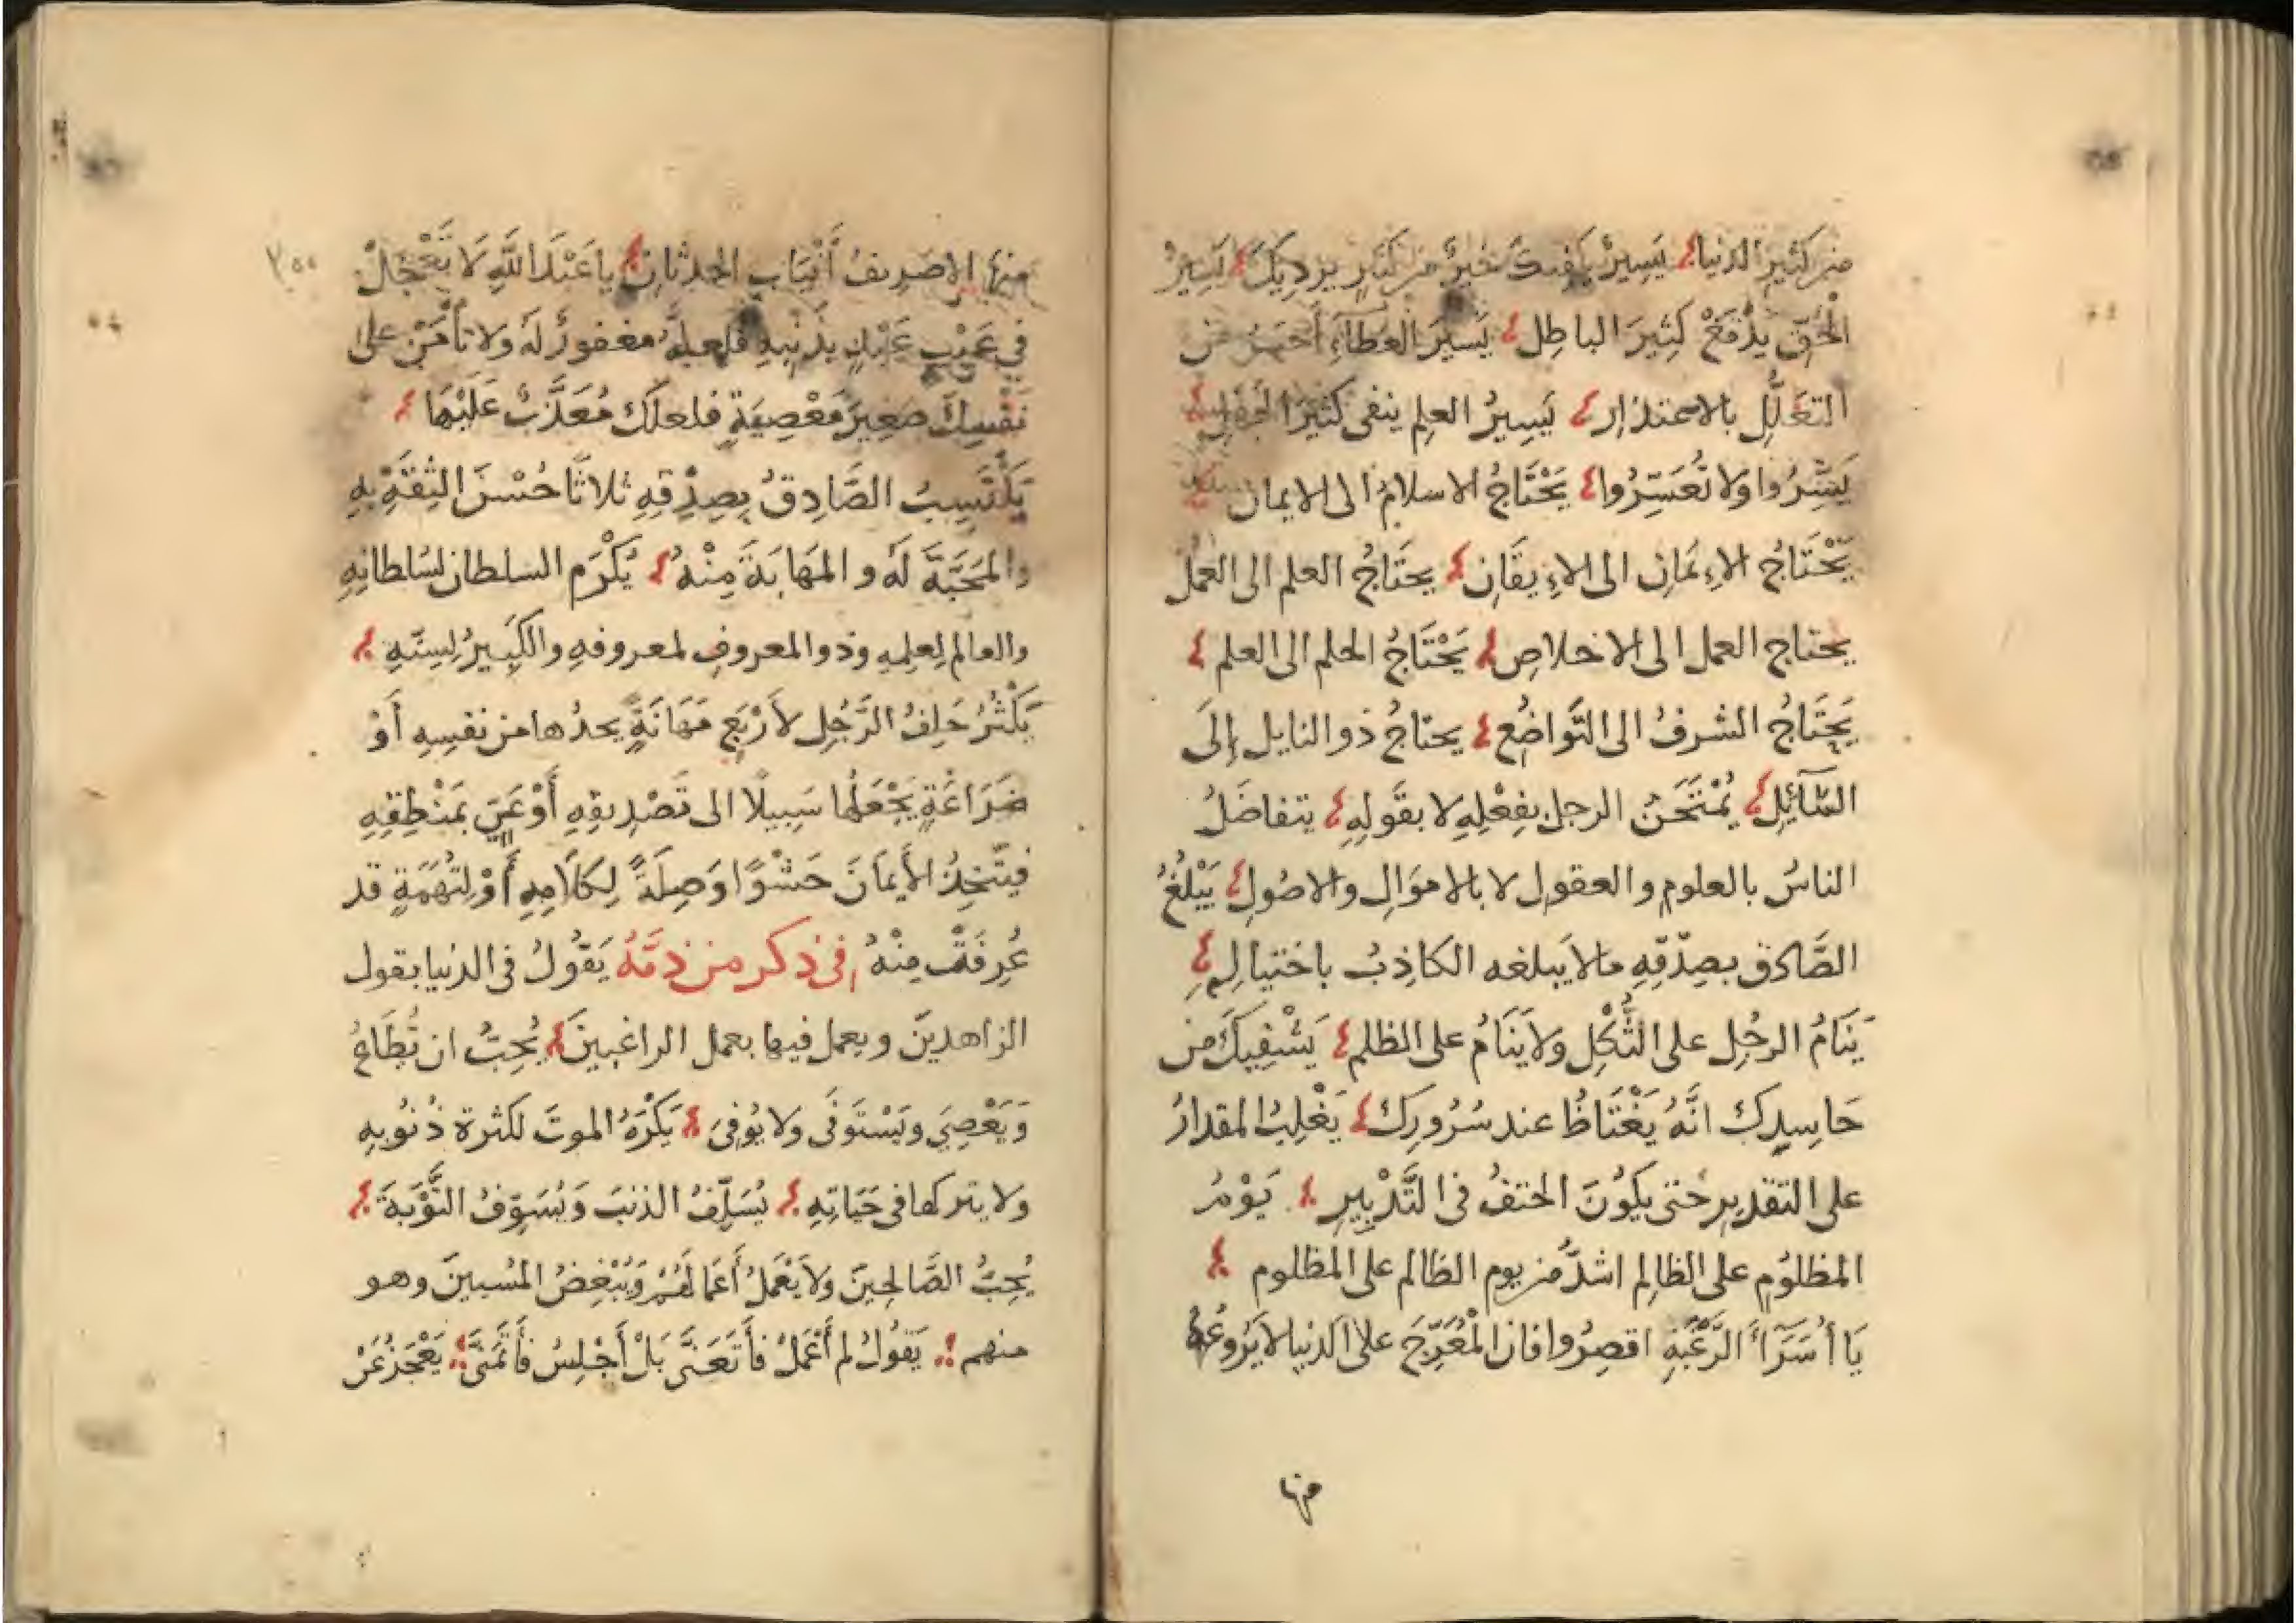 من كثير الدنيا يَسِيرٌ يكفيك خيرٌ من كثيرٍ يرديك يَسِيرُ
الْحَقّ يدْفَعُ كَثِيرَ الباطِل يَسيرُ العطاءِ أحسَنُ من
التعَلُّلِ بالاعتذارِ يَسِيرُ العلمِ ينفى كَثيرَ الجهلِ
يَسِّرُوا ولا تُعَسِّرُوا يَحْتَاجُ الاسلامُ الى الايمان
يَحْتَاجُ الاِيمَان الى الاِيقَانِ يحتَاجُ العلم الى العَمل
يحتاج العمل الى الاخلاصِ يَحْتَاجُ الحلم الى العلم
يَحْتَاجُ الشرفُ الى التَّواضُعِ يحتاجُ ذو النايل إلَى
السَّآئِلِ يُمْتَحَنُ الرجل بفِعْلِهِ لا بقَولِهِ يتفاضَلُ
الناسُ بالعلوم والعقول لا بالاموَالِ والاصُولِ يَبْلغُ
الصَّادق بصِدْقِهِ ما لا يَبلغه الكاذِبُ باحتيالِهِ
يَنَامُ الرجُل على الثُّكْلِ ولا يَنَامُ على الظلم يَشْفِيكَ من
حَاسِدِكَ انَّهُ يَغْتَاظُ عند سُرُورِكَ يَغْلِبُ المقدارُ
على التقديرِ حَتى يكُونَ الحتفُ فى التَّدْبِيرِ يَوْمُ
المظلوُمِ على الظالِم اشدُّ من يوم الظالم على المظلوم
يَا أُسَرَآءَ الرَّغْبَةِ اقصِرُوا فان الْمُعَرِّجَ على الدنيا لا يَرُوعُهُ
منها
منها الا صَرِيفُ أنْيَابِ الحدثانِ يا عَبْدَ اللَّهِ لَا تَعْجَلْ
فى عَيْبِ عَبْدٍ بِذَنْبِهِ فلعلهُ مغفورٌ لَهُ ولا تأمَنْ على
نَفْسِكَ صَغِيرَ مَعْصِيَةٍ فلعلكَ مُعَذَّبٌ عَلَيْهَا
يَكْتَسِبُ الصَّادِقُ بِصِدْقِهِ ثلاثًا حُسْنَ الثِقَةِ بهِ
والمَحَبَّةَ لَهُ و المَهَابَةَ مِنْهُ يُكْرَم السلطان لسُلطانِهِ
والعالم لِعلمِهِ وذو المعروفِ لمعروفهِ والكَبِيرُ لِسِنِّهِ
يَكْثُرُ حَلِفُ الرَّجُلِ لأَرْبَعٍ مَهَانَةٍ يجدُها من نفسِهِ أَوْ
ضَرَاعَةٍ يَجْعَلُها سَبِيلًا الى تَصْدِيقِهِ أَوْ عَىٍّ بمَنْطِقِهِ
فيتّخِذُ الأَيْمَانَ حَشْوًا وَصِلَةً لِكَلَامِهِ أَوْ لِتُهَمَةٍ قد
عُرِفَتْ مِنْهُ فى ذكر من ذمّهُ يَقُولُ فى الدنيا بقول
الزاهدينَ ويعمل فيها بعمل الراغبينَ يُحِبُّ ان تُطَاعَ
وَيَعْصِىَ ويَسْتَوفَى ولا يُوفِى يَكْرَهُ الموتَ لكثرة ذُنُوبِهِ
ولا يتركها فى حَيَاتِهِ يُسَلِّفُ الذنبَ وَيُسَوِّفُ التَّوْبَةَ
يُحِبُّ الصَّالحِينَ ولَا يَعْمَلُ أَعمَالَهُمْ وَيُبْغِضُ المُسيئينَ وهو
منهم يَقُولُ لم أَعْمَلْ فأَتَعَنَّى بَلْ أَجْلِسُ فأتَمَنَّى يَعْجَزُ عَنْ